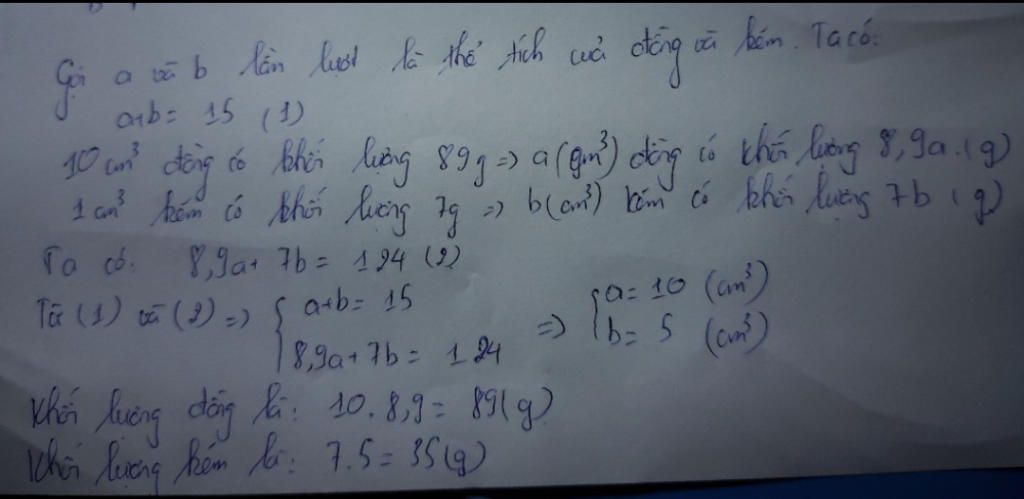 Gọi a và b lần lượt là thể tích của đồng và kẽm. Ta có:
a+b= 15 (1)
10 cm³ đồng có khối lượng 89g => a(gm³) đồng có khối lượng 8,9a.(g)
1 cm³ kẽm có khối lượng 7g => b(cm³) kẽm có khối lượng 7b (g)
Ta có: 8,9a+ 7b= 124 (2)
Từ (1) và (2) => { a+b= 15
8,9a+7b= 124
=> { a= 10 (cm³)
b= 5 (cm³)
Khối lượng đồng là: 10. 8,9= 89(g)
Khối lượng kẽm là: 7.5= 35(g)